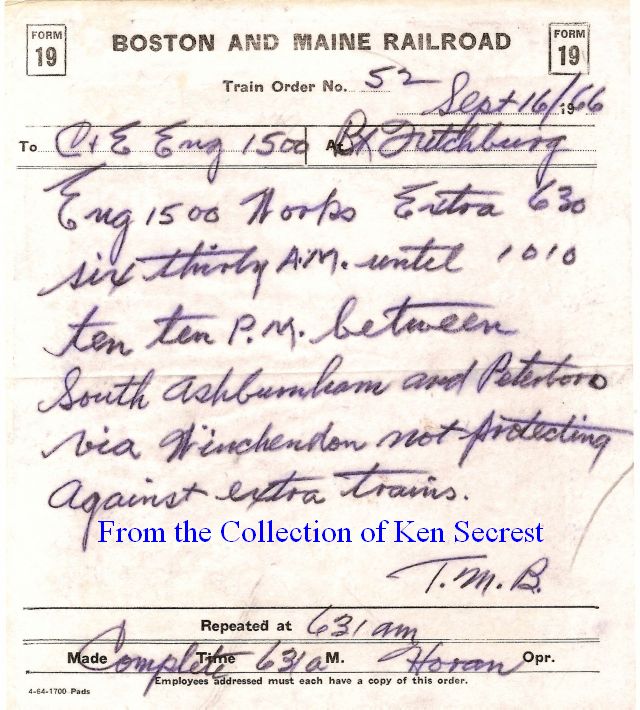 FORM 19
BOSTON AND MAINE RAILROAD
FORM 19
Train Order No. 52
Sept 16/1966
To C+E Eng 1500 At Fitchburg
Eng 1500 Works Extra 630
six thirty A.M. until 1010
ten ten P.M. between
South Ashburnham and Peterboro
via Winchendon not protecting
against extra trains.
From the Collection of Ken Secrest
T.M.B.
Repeated at 631 am
Made Complete Time 631 a M. Horan Opr.
Employees addressed must each have a copy of this order.
4-64-1700 Pads